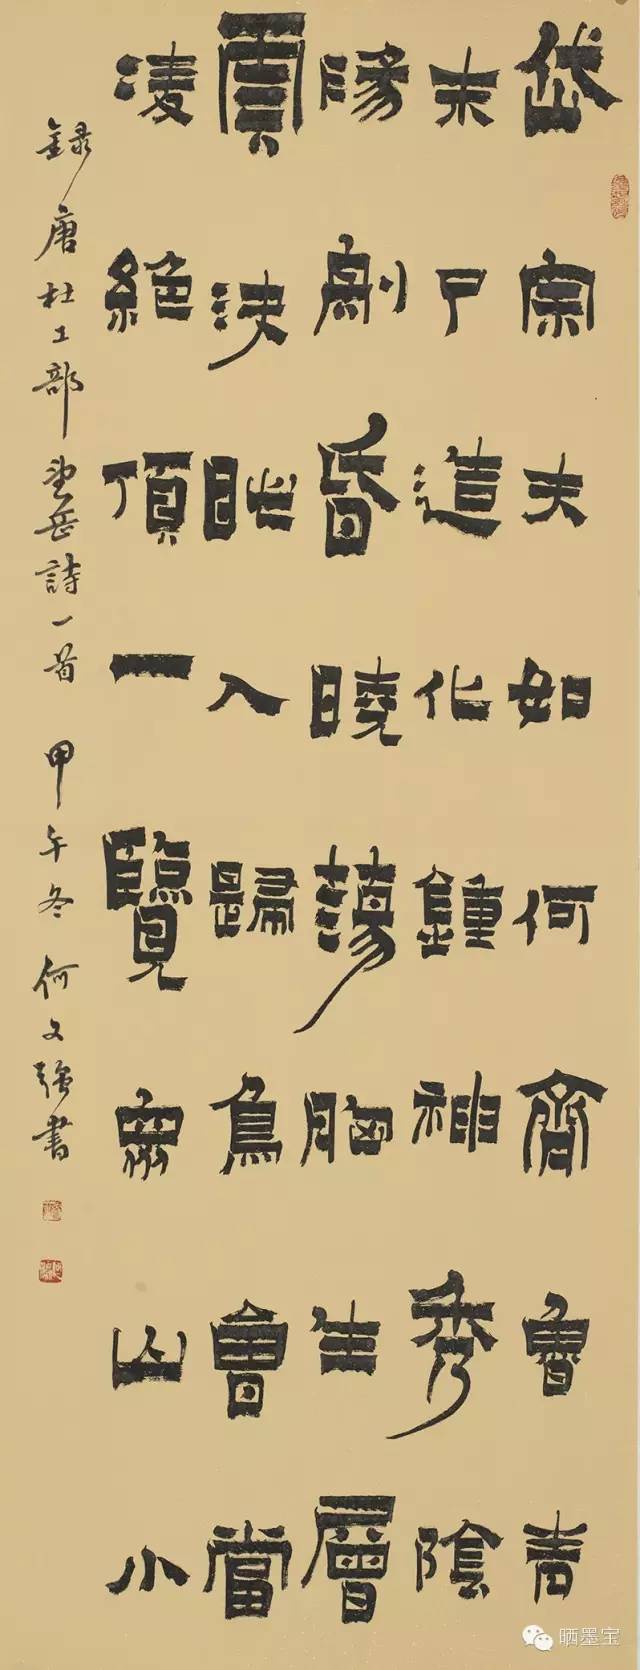 岱宗夫如何齊魯青
未了造化鍾神秀陰
陽割昏曉蕩胸生層
雲決眥入歸鳥會當
淩絶頂一覽衆山小
録唐杜工部望岳詩一首 甲午冬 何文強書
晒墨宝